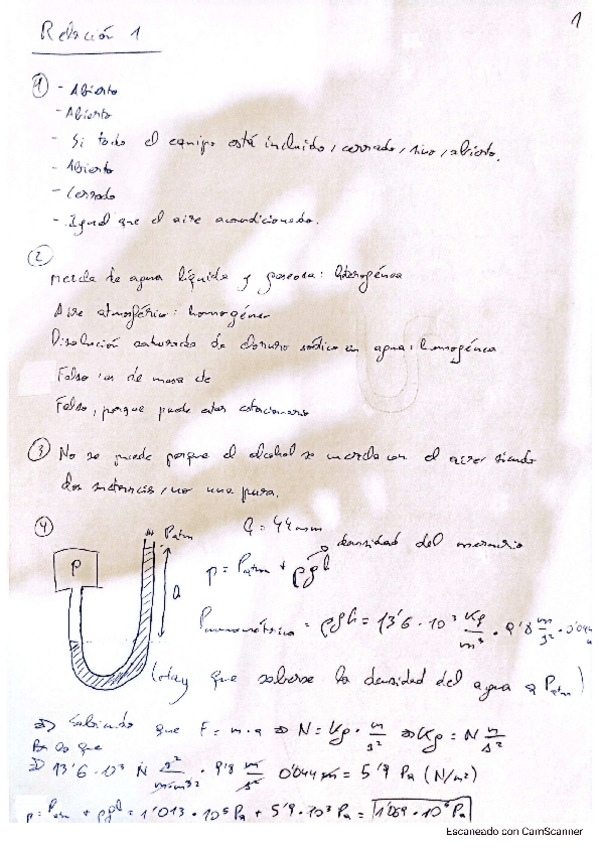 1
Relación 1
1 - Abierto
- Abierto
- Si todo el equipo está incluido, cerrado, sino, abierto.
- Abierto
- Cerrado
- Igual que el aire acondicionado.
2
Mezcla de agua líquida y gaseosa: heterogénea
Aire atmosférico: homogéneo
Disolución saturada de cloruro sódico en agua: homogénea
Falso, es de masa cte
Falso, porque puede estar estacionario
3 No se puede porque el alcohol se mezcla con el aire, siendo
dos sustancias, no una pura.
4
Patm
P
l = 44 mm
densidad del mercurio
p = Patm + ρgl
Pmanométrica = ρgl = 13'6 · 10³ Kg/m³ · 9'8 m/s² · 0'044
(Hay que saberse la densidad del agua y Patm)
⇒ Sabiendo que F = m · a ⇒ N = Kg · m/s² ⇒ Kg = N
Por lo que
⇒ 13'6 · 10³ N s²/m·m³ · 9'8 m/s² 0'044 m = 5'9 Pa (N/m²)
p = Patm + ρgl = 1'013 · 10⁵ Pa + 5'9 · 10³ Pa =
Escaneado con CamScanner